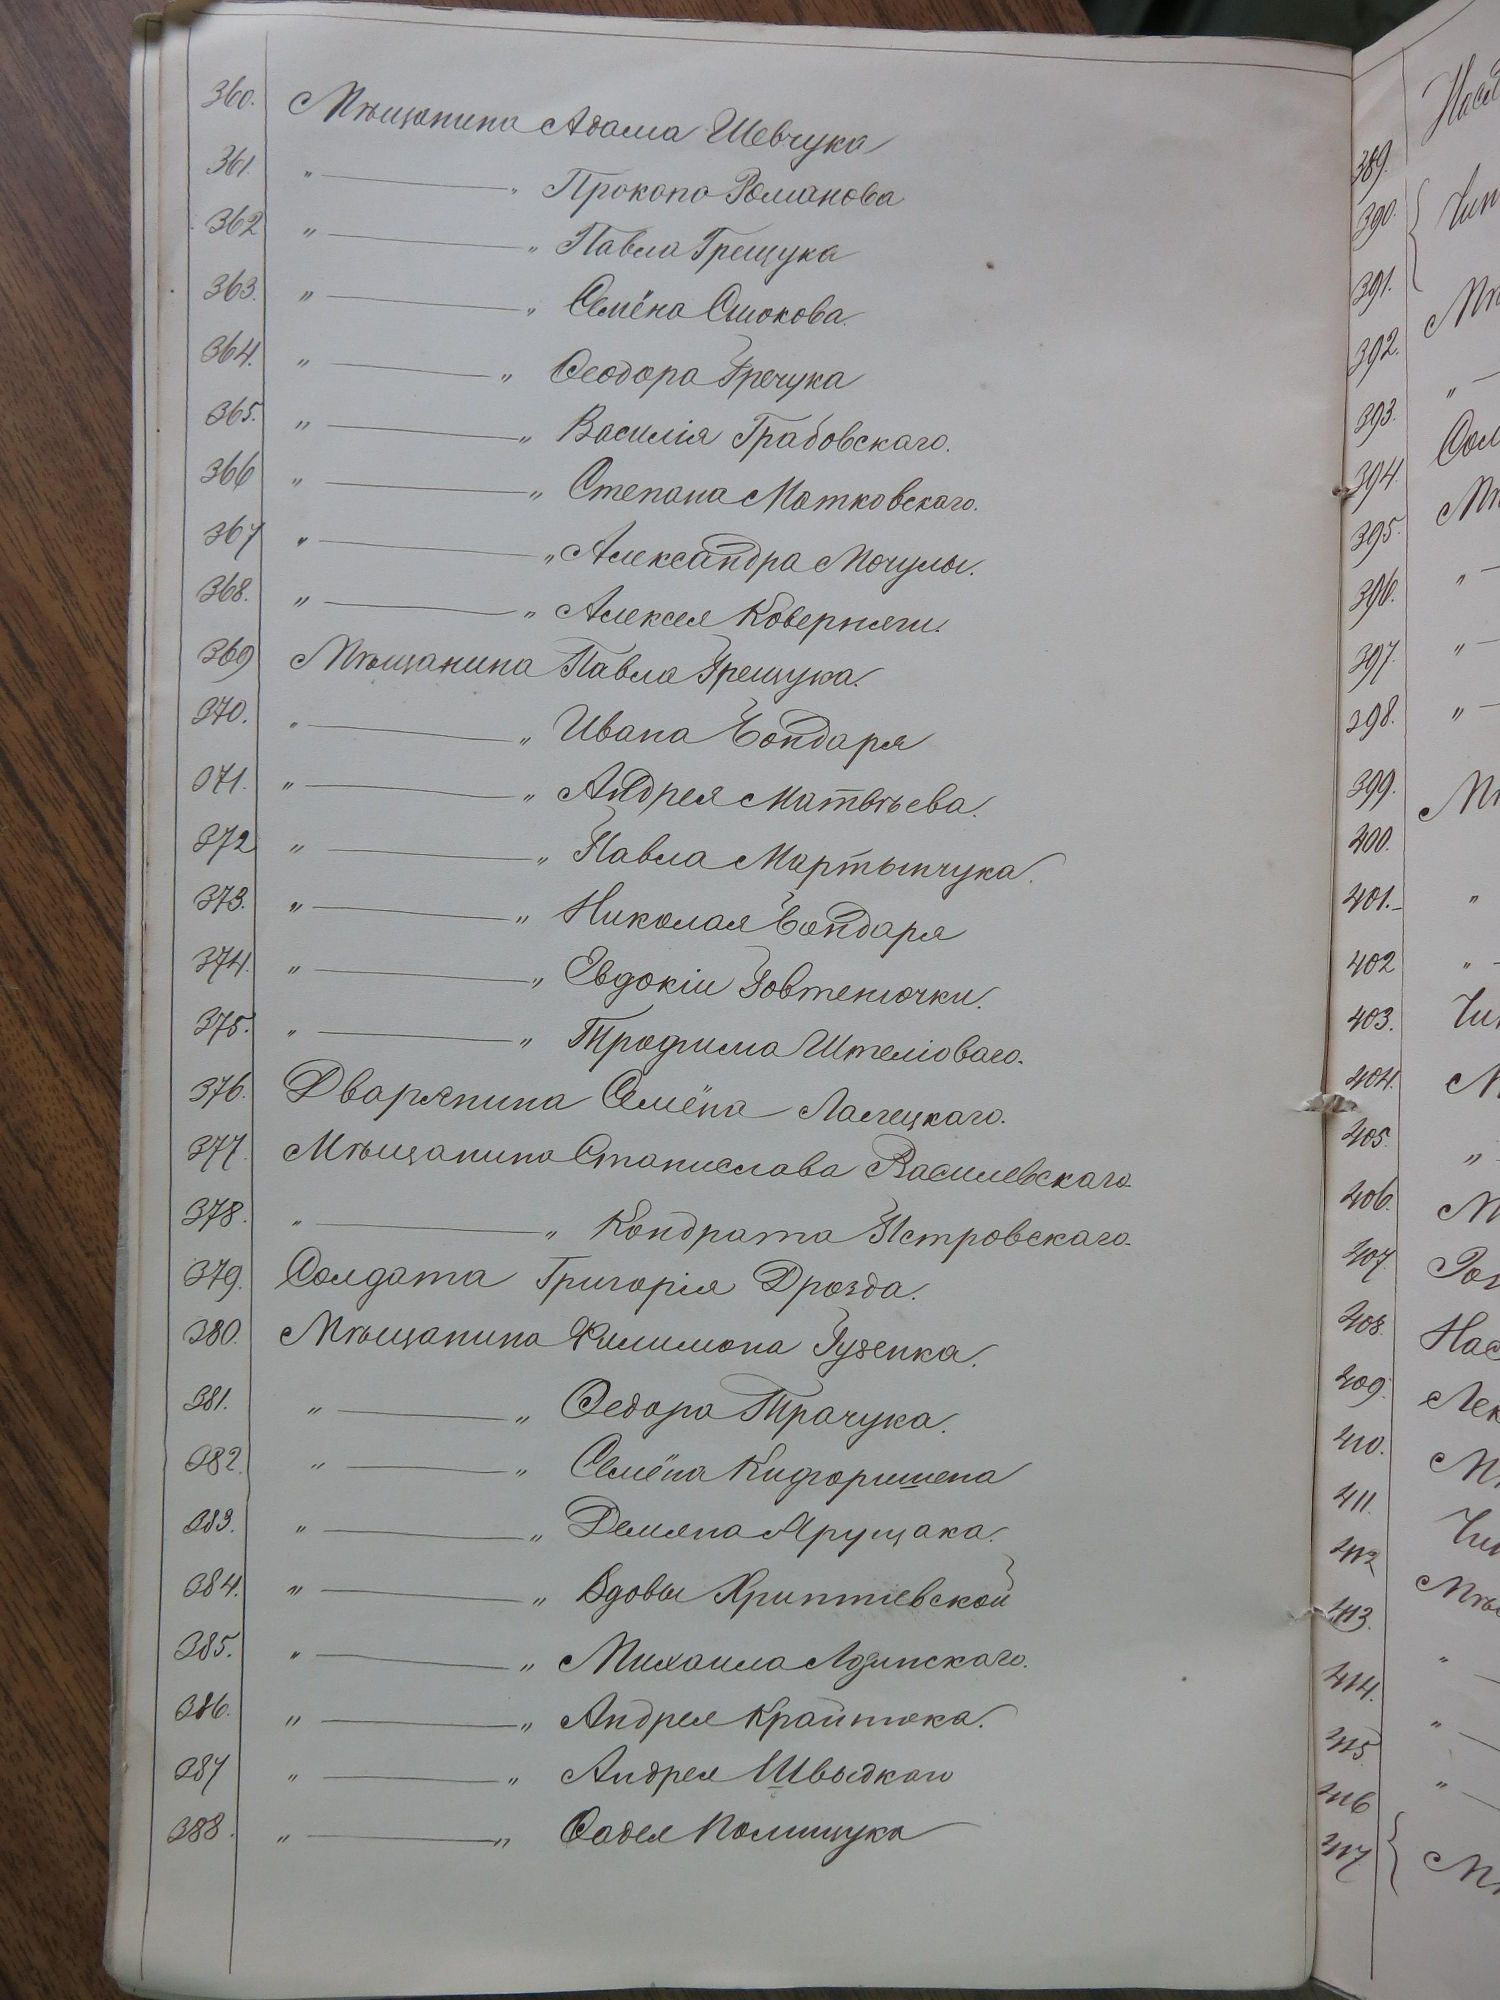 360. Мѣщанина Адама Шевчука
361. " — " Прокопа Романова
362 " — " Павла Грещука
363. " — " Семёна Сынокова.
364. " — " Ѳеодора Гречука
365. " — " Василія Грабовскаго.
366 " — " Степана Матковскаго.
367 " — " Александра Мочулы.
368. " — " Алексея Коверняги.
369 Мѣщанина Павла Грещука.
370. " — " Ивана Бондаря
371. " — " Андрея Матвѣева.
372 " — " Павла Мартынчука.
373. " — " Николая Бондаря
374. " — " Евдокіи Говтенючки.
375. " — " Трофима
376. Дворянина Семёна
377. Мѣщанина Станислава Василевскаго
378. " — " Кондрата Петровскаго.
379. Солдата Григорія Дрозда.
380. Мѣщанина Филимона Гуденка.
381. " — " Ѳедора Трачука.
382. " — " Семёна
383. " — " Демяна Ярущака.
384. " — " Вдовы Хриптіевской
385. " — " Михаила Лозинскаго.
386. " — " Андрея
387 " — " Андрея Швыдкаго
388. " — " Фадея Полищука
389.
390.
391.
392.
393.
394.
395.
396.
397.
398.
399.
400.
401.
402
403.
404.
405.
406.
407.
408.
409.
410.
411.
412
413.
414.
415
416
417